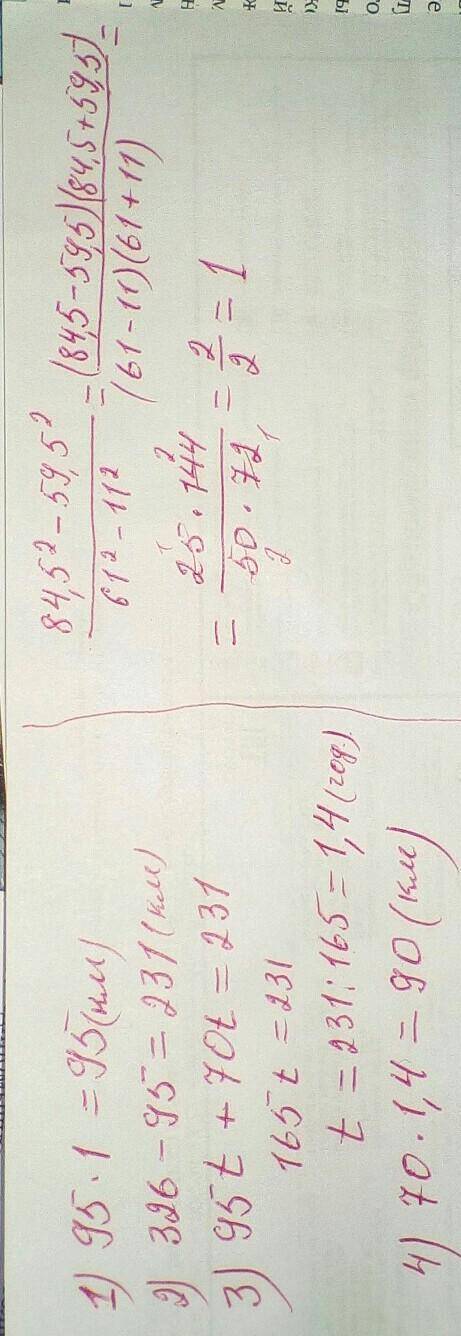 1) 95 · 1 = 95 (км)
2) 326 - 95 = 231 (км)
3) 95t + 70t = 231
165t = 231
t = 231 : 165 = 1,4 (год.)
4) 70 · 1,4 = 90 (км)
84,5² - 59,5² / 61² - 11² = (84,5 - 59,5)(84,5 + 59,5) / (61 - 11)(61 + 11) =
= 25 · 144 / 50 · 72 = 2/2 = 1